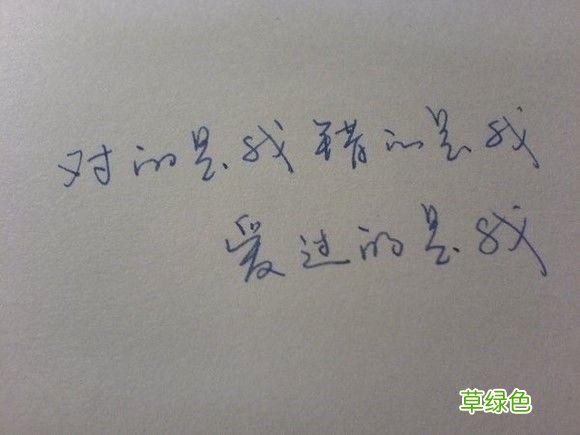 对的是我错的是我
爱过的是我
草绿色